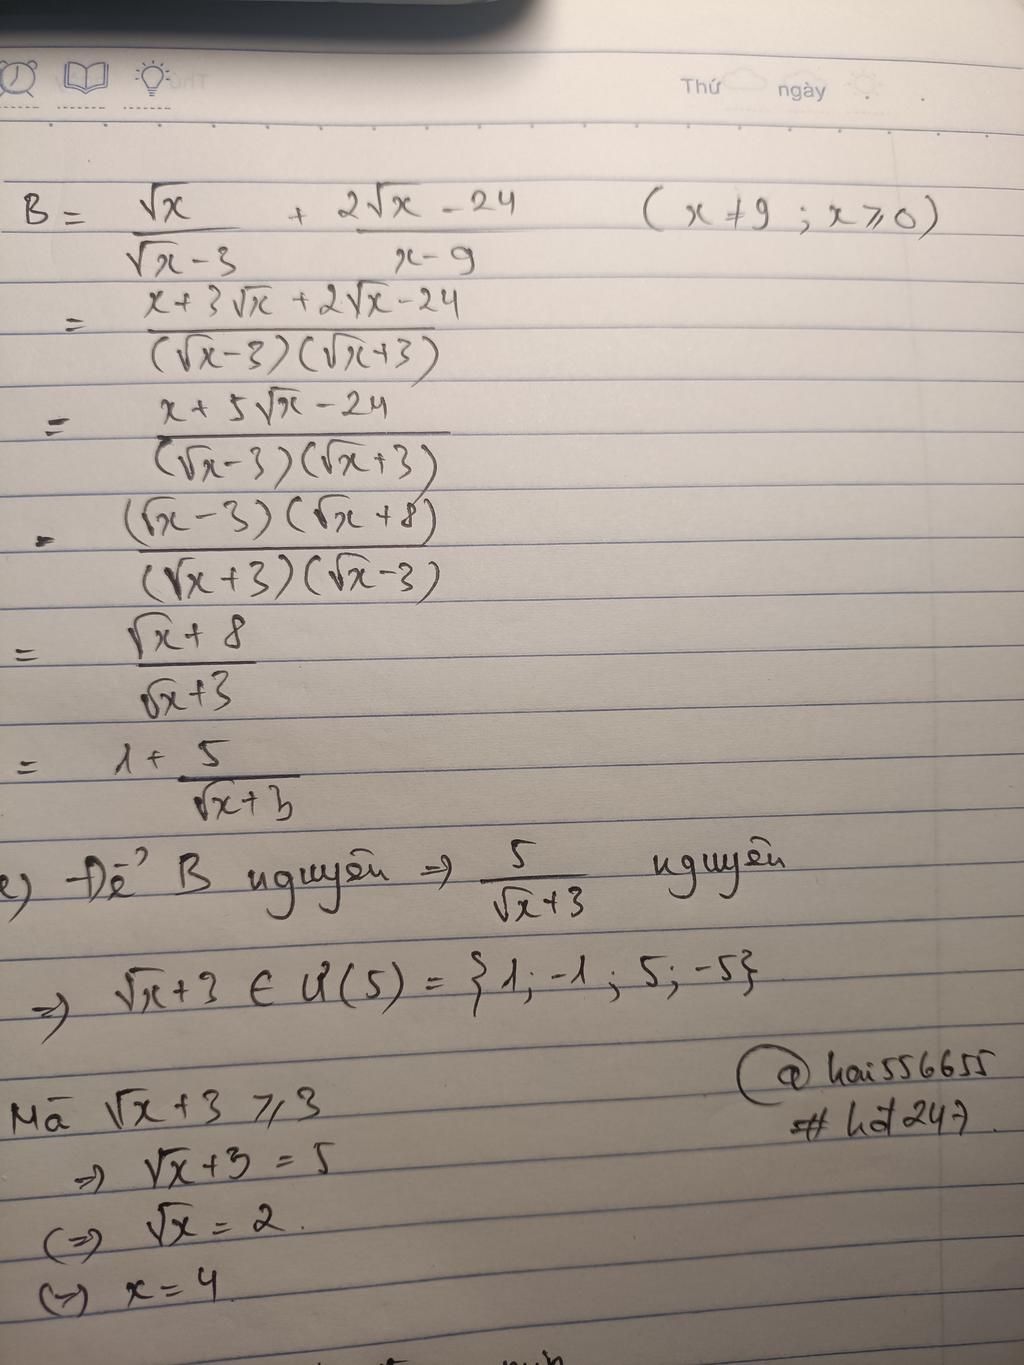 Thứ ngày
B = √x/(√x - 3) + (2√x - 24)/(x - 9) (x ≠ 9 ; x ⩾ 0)
= (x + 3√x + 2√x - 24)/((√x - 3)(√x + 3))
= (x + 5√x - 24)/((√x - 3)(√x + 3))
= ((√x - 3)(√x + 8))/((√x + 3)(√x - 3))
= (√x + 8)/(√x + 3)
= 1 + 5/(√x + 3)
c) Để B nguyên => 5/(√x + 3) nguyên
=> √x + 3 ∈ Ư(5) = {1; -1; 5; -5}
Mà √x + 3 ⩾ 3
=> √x + 3 = 5
(=> √x = 2.
(=> x = 4
@hai556655
# hđ247.